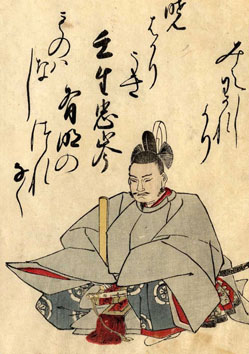 壬生忠岑
有明の
つれ
なく
みえしわかれ
より
暁
はかり
うき
ものハ
なし